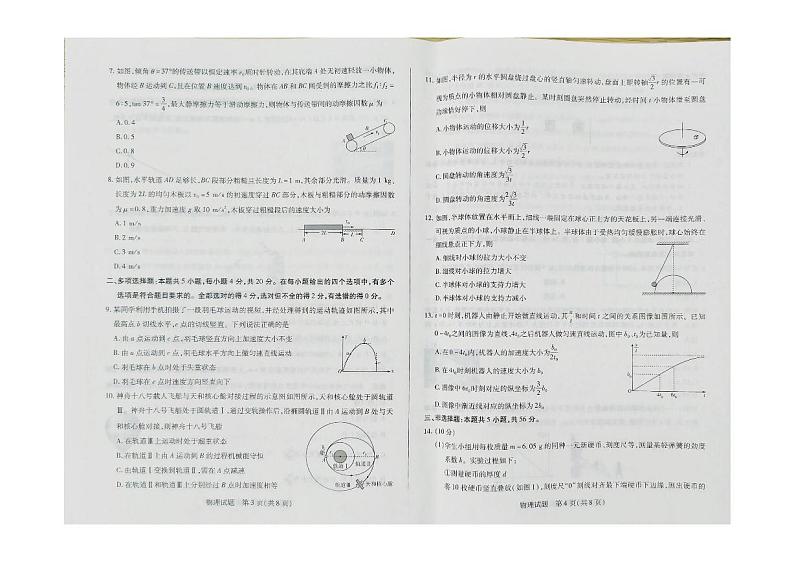 7. 如图,倾角θ=37°的传送带以恒定速率v₀顺时针转动,在其底端A处无初速轻放一小物体,
物体经B点运动到C点,且在位置B速度达到v₀。物体在AB和BC间受到的摩擦力之比f₁:f₂=
6:5,tan 37°=3/4,最大静摩擦力等于滑动摩擦力,则物体与传送带间的动摩擦因数μ为
A. 0.4
B. 0.5
C. 0.8
D. 0.9
8. 如图,水平轨道AD足够长,BC段部分粗糙且长度为L=1 m,其余部分光滑。质量为1 kg、
长度为2L的均匀木板以v₀=5 m/s的初速度穿过BC部分,木板与粗糙部分的动摩擦因数
为μ=0.8,重力加速度g取10 m/s²,木板穿过粗糙段后的速度大小为
A. 1 m/s
B. 2 m/s
C. 3 m/s
D. 4 m/s
v₀
2L
L
A
B
C
D
二、多项选择题:本题共5小题,每小题4分,共20分。在每小题给出的四个选项中,有多个
选项是符合题目要求的。全部选对的得4分,选对但不全的得2分,有选错的得0分。
9. 某同学利用手机拍摄了一段羽毛球运动的视频,并经处理得到的运动轨迹如图所示,其中
最高点b切线水平,c点的切线竖直。下列说法正确的是
A. 由a点运动到c点,羽毛球竖直方向上加速度大小不变
B. 由a点运动到c点,羽毛球水平方向上做匀速直线运动
C. 羽毛球在b点时处于失重状态
D. 羽毛球在c点时速度方向竖直向下
10. 神舟十八号载人飞船与天和核心舱对接过程的示意图如图所示,天和核心舱处于圆轨道
Ⅲ。神舟十八号飞船处于圆轨道Ⅰ,通过变轨操作后,沿椭圆轨道Ⅱ由A运动到B处与天
和核心舱对接,则神舟十八号飞船
A. 在轨道Ⅲ上运动时处于超重状态
B. 在轨道Ⅱ上由A运动到B的过程机械能守恒
C. 由轨道Ⅱ到轨道Ⅰ,需在A点减速
D. 在轨道Ⅱ和轨道Ⅲ上分别经过B点时加速度相等
轨道Ⅰ
轨道Ⅱ
轨道Ⅲ
天和核心舱
物理试题 第3页(共8页)
11. 如图,半径为r的水平圆盘绕过盘心的竖直轴匀速转动,盘面上距转轴√3/2 r的位置有一可
视为质点的小物体相对圆盘静止。某时刻圆盘突然停止转动,经时间t小物体滑至圆盘
边缘恰好停下,则
A. 小物体运动的位移大小为1/2 r
B. 小物体运动的位移大小为√3/2 r
C. 圆盘转动的角速度为√3/3t
D. 圆盘转动的角速度为2√3/3t
12. 如图,半球体放置在水平面上,细线一端固定在球心正上方的天花板上,另一端连接光滑、
可视为质点的小球,小球静止在半球体上。半球体由于受热均匀缓慢膨胀时,球心始终在
细线悬点正下方,则
A. 细线对小球的拉力大小不变
B. 细线对小球的拉力增大
C. 半球体对小球的支持力增大
D. 半球体对小球的支持力减小
13. t=0时刻,机器人由静止开始做直线运动,其x/t和时间t之间的关系图像如图所示。已知
0~4t₀之间的图像为直线,4t₀之后机器人做匀速直线运动,图中b₀、t₀为已知量,则
A. 在0~4t₀内,机器人的加速度大小为b₀/2t₀
B. 4t₀时刻机器人的速度大小为b₀
C. 图像中6t₀时刻对应的纵坐标为3/2 b₀
D. 图像中渐近线对应的纵坐标为2b₀
三、非选择题:本题共5小题,共56分。
14. (10分)
(1)学生小组用每枚质量m=6.05 g的同种一元新硬币、刻度尺等,测量某轻弹簧的劲度
系数k。实验过程如下:
①测量硬币的厚度d
将10枚硬币竖直叠放(如图1),刻度尺“0”刻线对齐最下端硬币下边缘,则硬币的
物理试题 第4页(共8页)